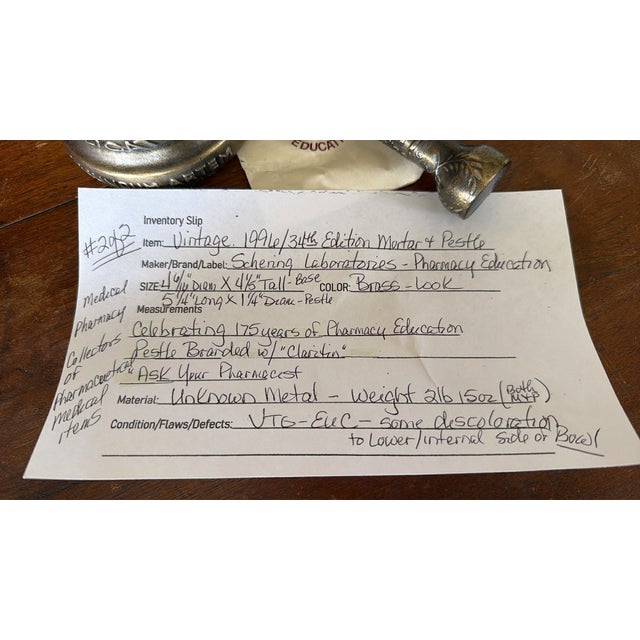 EDUCAT
Inventory Slip
#2of2
Item: Vintage 1996/34th Edition Mortar + Pestle
Maker/Brand/Label: Schering Laboratories - Pharmacy Education
SIZE: Diam X Tall - Base COLOR: Brass - Look
5 1/4" Long X 1 1/4" Diam - Pestle
Measurements
Celebrating 175 years of Pharmacy Education
Pestle Branded w/ "Claritin"
"Ask Your Pharmacist
Material: Unknown Metal - Weight 2lb 15oz (Both M+P)
Condition/Flaws/Defects: VTG - EUC - some descoloration
to Lower/internal side or Bowl
Medical
Pharmacy
Collectors
of
Pharmaceutical
medical
items